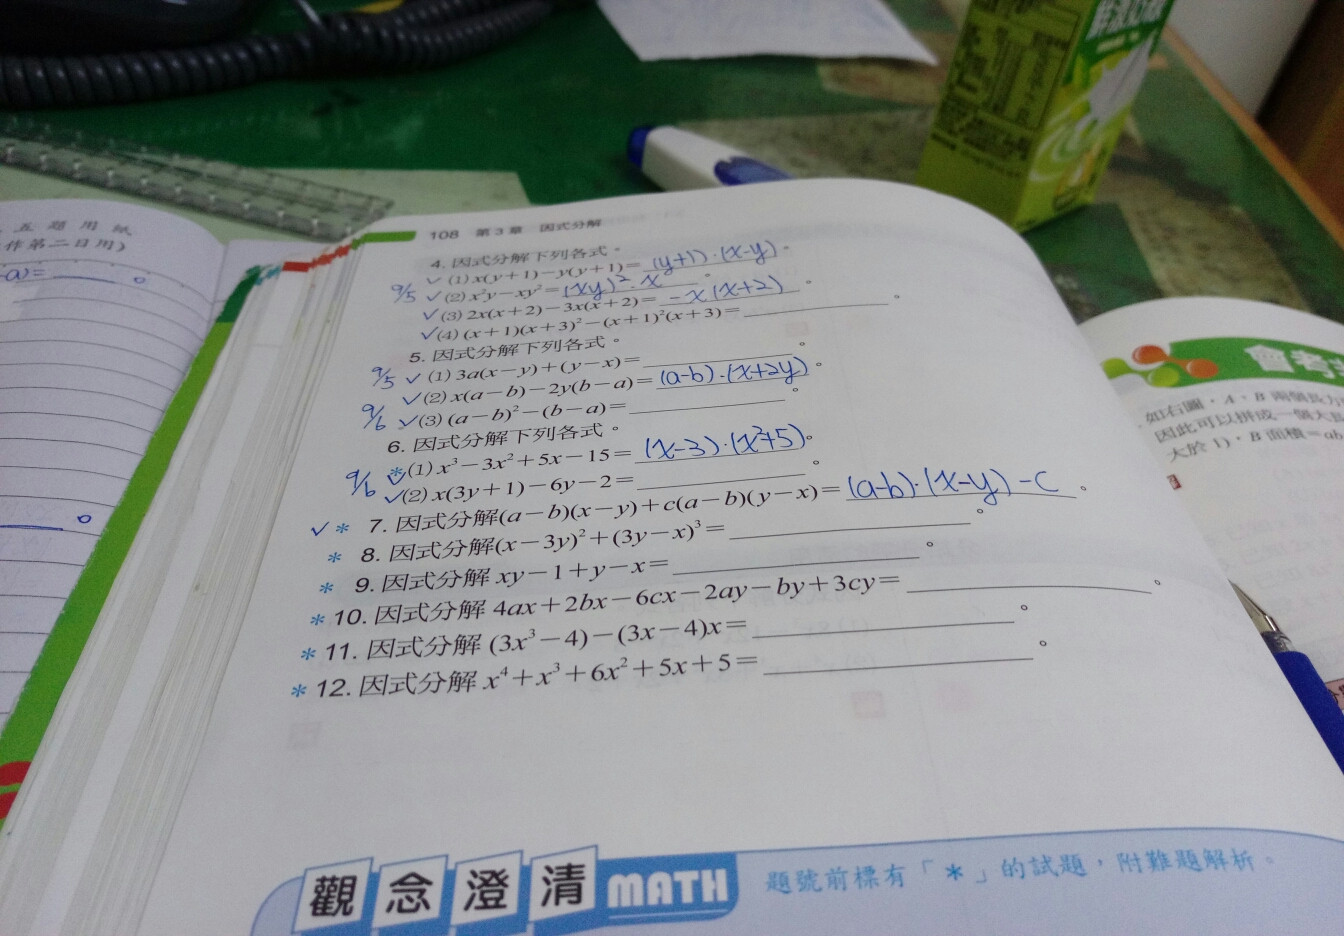 五題用紙
作第二日用)
-a)=______。
108 第3章 因式分解
4. 因式分解下列各式。
✓(1) x(y+1)-y(y+1)=(y+1)·(x-y)。
9/5 ✓(2) x²y-xy²=(xy)²·x。
✓(3) 2x(x+2)-3x(x+2)=-x(x+2)。
✓(4) (x+1)(x+3)²-(x+1)²(x+3)=______。
5. 因式分解下列各式。
9/5 ✓(1) 3a(x-y)+(y-x)=______。
✓(2) x(a-b)-2y(b-a)=(a-b)·(x+2y)。
9/6 ✓(3) (a-b)²-(b-a)=______。
6. 因式分解下列各式。
9/6 *✓(1) x³-3x²+5x-15=(x-3)·(x²+5)。
✓(2) x(3y+1)-6y-2=______。
✓* 7. 因式分解(a-b)(x-y)+c(a-b)(y-x)=(a-b)·(x-y)-c。
* 8. 因式分解(x-3y)²+(3y-x)³=______。
* 9. 因式分解 xy-1+y-x=______。
* 10. 因式分解 4ax+2bx-6cx-2ay-by+3cy=______。
* 11. 因式分解 (3x³-4)-(3x-4)x=______。
* 12. 因式分解 x⁴+x³+6x²+5x+5=______。
觀念澄清 MATH
題號前標有「*」的試題,附難題解析。
會考
如右圖,A、B 兩個長方
因此可以拼成一個大
大於1),B 面積=ab